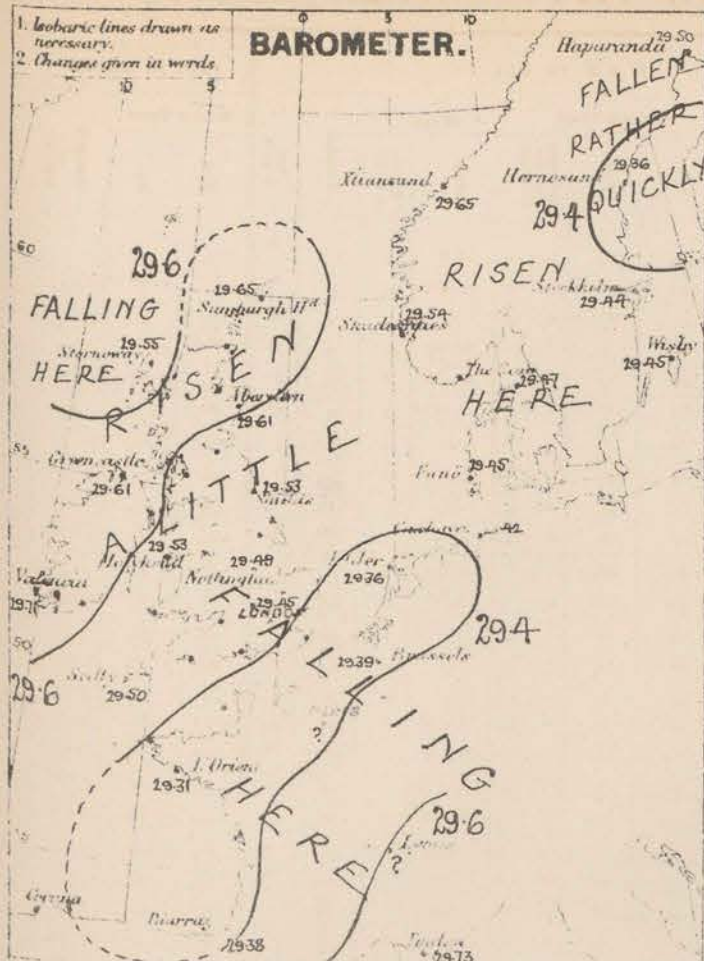 1. Isobaric lines drawn as
necessary.
2 Changes given in words
BAROMETER.
10
5
0
5
10
29.50
Haparanda
FALLEN
RATHER
QUICKLY
29.86
Hernosand
29.4
Xtiansund
29.65
60
29.6
29.65
Sumburgh Hd
RISEN
HERE
Stockholm
29.44
29.54
Skudesnaes
Wisby
29.45
FALLING
HERE
29.55
Stornoway
The Scaw
29.47
RISEN
A LITTLE
Aberdeen
29.61
55
Greencastle
29.61
29.53
Fanö
29.45
Cuxhaven
42
29.53
Holyhead
29.48
Nottingham
Helder
29.36
Valencia
29.71
29.45
LONDON
29.4
50
29.6
Scilly
29.50
29.39
Brussels
FALLING
HERE
?
L'Orient
29.31
29.6
45
Lyons
?
Corunna
Biarritz
29.38
Toulon
29.73